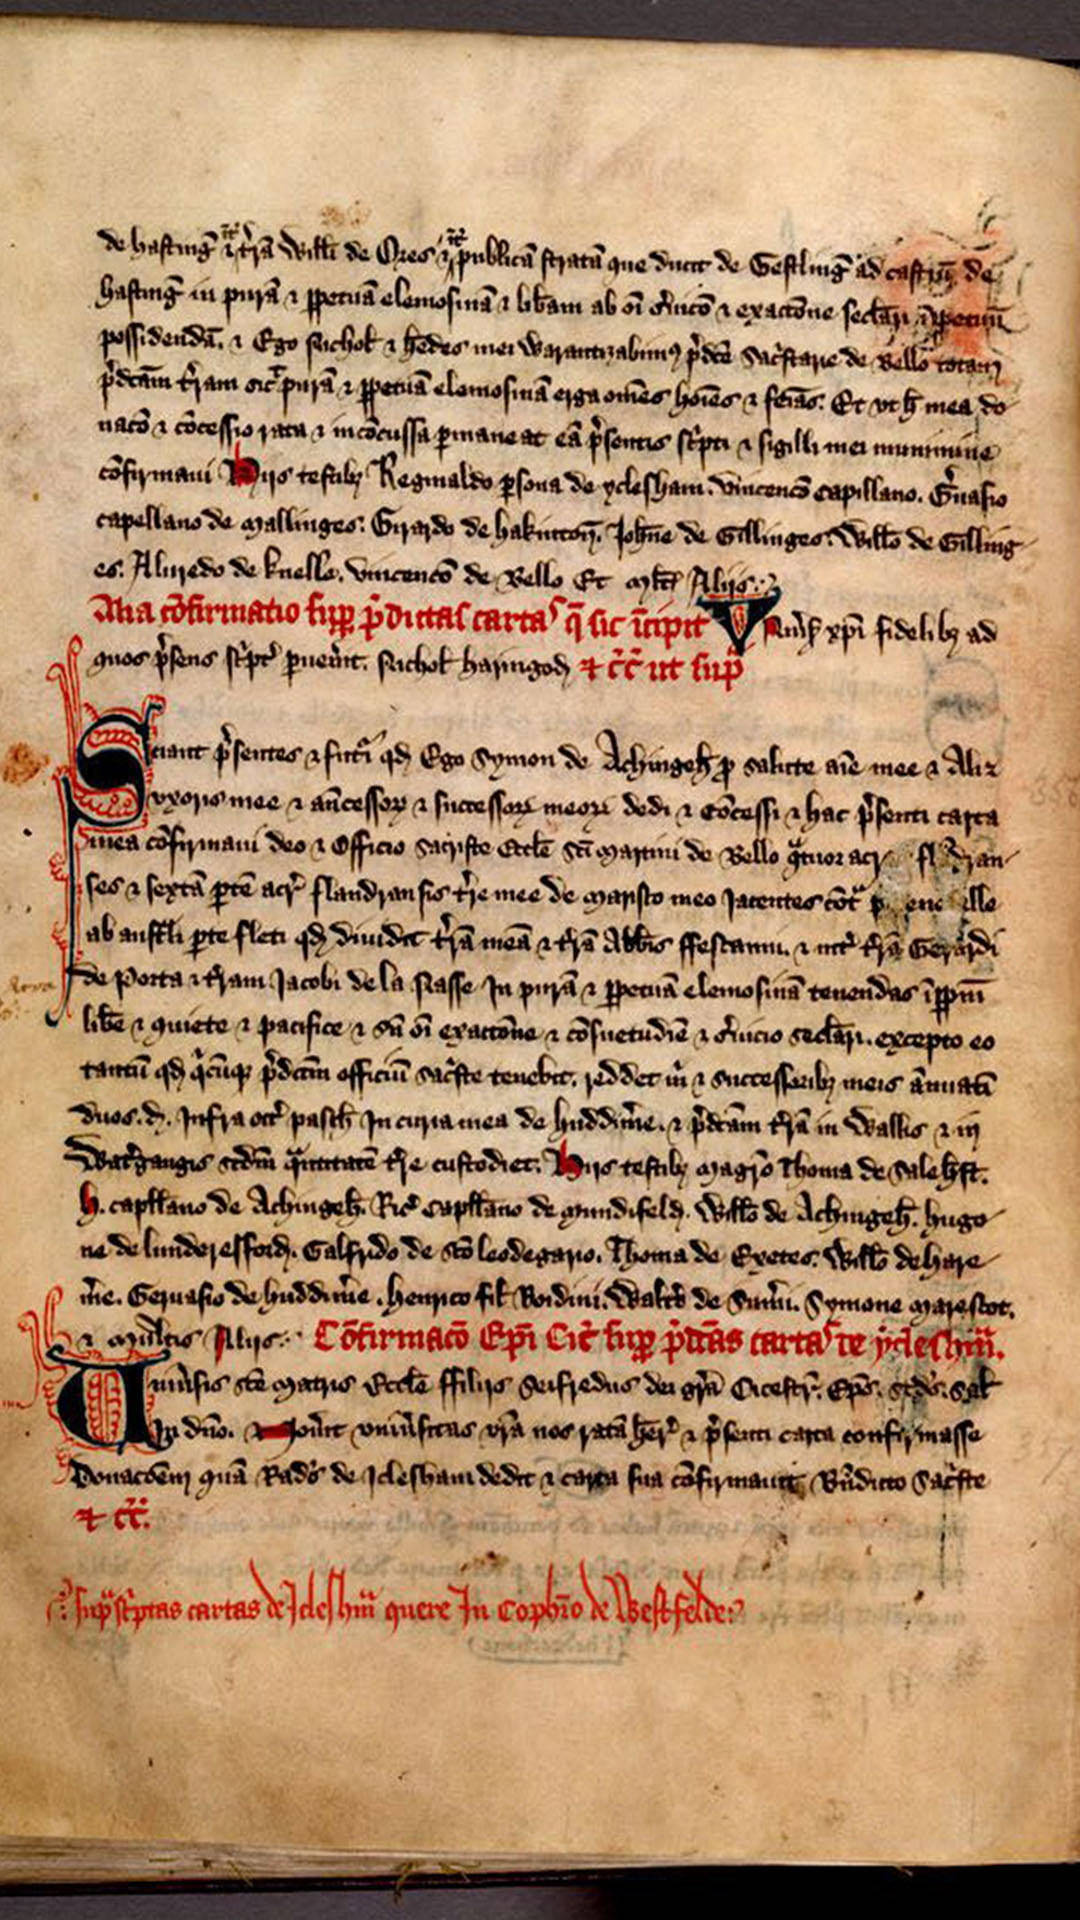 de hastinḡ ⁊ t̄rā Willi de Ores ⁊ publicā stratā que ducit de Gestlinḡ ad castrū de
hastinḡ in purā ⁊ ꝑpetuā elemosinā ⁊ lib̄am ab oī s̄uicō ⁊ exactōne
possidendā. ⁊ Ego Nichol ⁊ h̄edes mei Warantizabimꝰ p̄dc̄e Sac̄starie de Bello totam
p̄dc̄am t̄ram sic̄ purā ⁊ ꝑpetuā elemosinā erga om̄es hoīes ⁊ fēīas. Et vt h̄ mea do
nacō ⁊ cōcessio rata ⁊ incōcussa ꝑmaneat eā p̄sentis sc̄pti ⁊ sigilli mei munimine
cōfirmaui Hiis testibꝫ Reginaldo ꝑsona de yclesham. Vincencō capillano. Ḡuasio
capellano de Mallinges. Girardo de hakintoñ. Joħne de Gillinges. Willo de Gilling
es. Aluredo de knelle. Vincencō de Bello Et ml̄t̄ Aliis
Alia cōfirmatio sup̱ p̄dictas cartas q̄ sic īcipit Vniūs̄ xp̄i fidelibꝫ ad
quos p̄sens sc̄pt̄ ꝑuen̄it. Nichol haringod ⁊ c̄c̄ ut sup̄
Sciant p̄sentes ⁊ futī qđ Ego Symon de Achingeħ ꝑ salute aīe mee ⁊ Aliz
vxoris mee ⁊ an̄cessoꝝ ⁊ successoꝝ meoꝝ dedi ⁊ cōcessi ⁊ hac p̄senti carta
mea cōfirmaui deo ⁊ Officio sacriste Eccl̄e sc̄i Martini de Bello q̄tuor acr̄
ses ⁊ sextā ꝑtē acr̄ flandrensis t̄re mee de Maristo meo Jacentes
ab austl̄i ꝑte fleti qđ diuidit t̄rā meā ⁊ t̄rā Abb̄is ffescanni. ⁊ int̄ t̄rā Gerardi
de Porta ⁊ t̄ram Jacobi de la Nasse In purā ⁊ ꝑpetuā elemosinā tenendas īꝑpm̄
lib̄e ⁊ quiete ⁊ pacifice ⁊ sn̄ oī exactōne ⁊ cōsuetudīe ⁊ s̄uicio sec̄lari. excepto eo
tantū qđ q̄cūqꝫ p̄dc̄m officiū sac̄ste tenebit. reddet m̄ ⁊ successoribꝫ meis ānuatī
duos .đ. Infra oct̄ pascħ In curia mea de huddim̄e. ⁊ p̄dc̄am t̄rā in Wallis ⁊ in
Wat̄gangis sc̄dm q̄ntitatē t̄re custodiet. Hiis testibꝫ magr̄o Thoma de Saleħst.
H. capll̄ano de Achingeħ. Ric̄ Capll̄ano de Mundifeld. Willo de Achingeħ. Hugo
ne de lunderefford. Galfrido de sc̄o leodegario. Thoma de Exetes. Willo de hare
m̄e. Geruasio de huddim̄e. henrico fil Boidini. Walt̄o de Sum̄i. Symone Marescot.
⁊ Multis Aliis. Cōfirmacō Ep̄i Cic̄ sup̱ p̄dc̄as cartas de ycleshm̄.
Vniūsis sc̄e Matris Eccl̄e ffiliis Seifredus dei gr̄a Cicestr̄. Ep̄s. Sal̄
In dn̄o. Nou̅it vniūsitas vr̄a nos ratā ħer̄ ⁊ p̄senti carta confirmasse
Donacōem quā Radōs de Iclesham dedit ⁊ carta sua cōfirmauit Bn̄dicto Sac̄ste
⁊ c̄c̄.
sup̄sc̄ptas cartas de Icleshm̄ quere In Cophīo de Westfelde